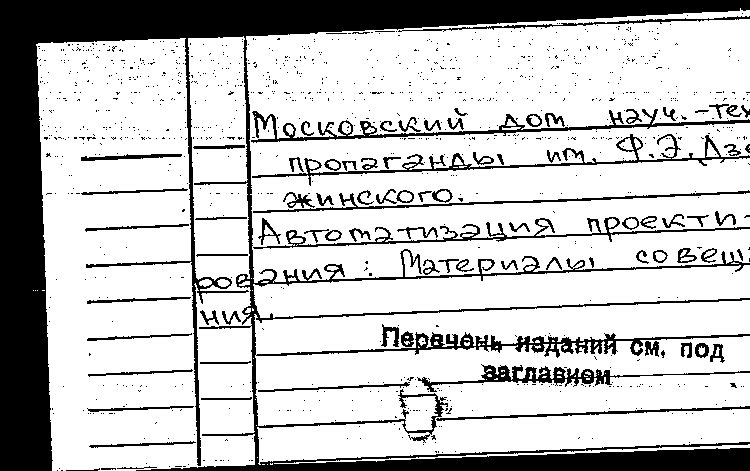 Московский дом науч.-тех
пропаганды им. Ф.Э.Дзе
жинского.
Автоматизация проекти-
рования: Материалы совеща
ния.
Перечень изданий см. под
заглавием